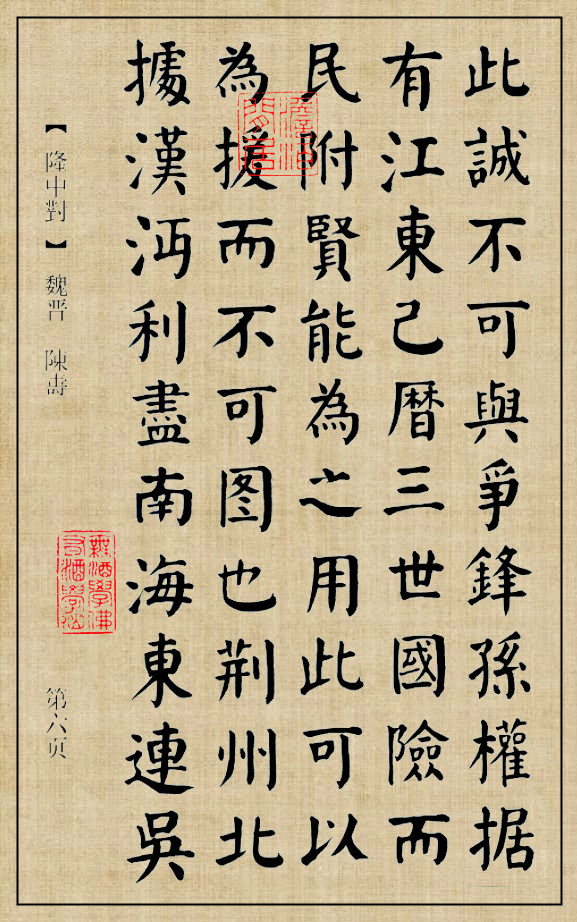 此誠不可與爭鋒孫權据
有江東己曆三世國險而
民附賢能為之用此可以
為援而不可图也荆州北
據漢沔利盡南海東連吳
【隆中對】 魏晋 陳壽 第六页